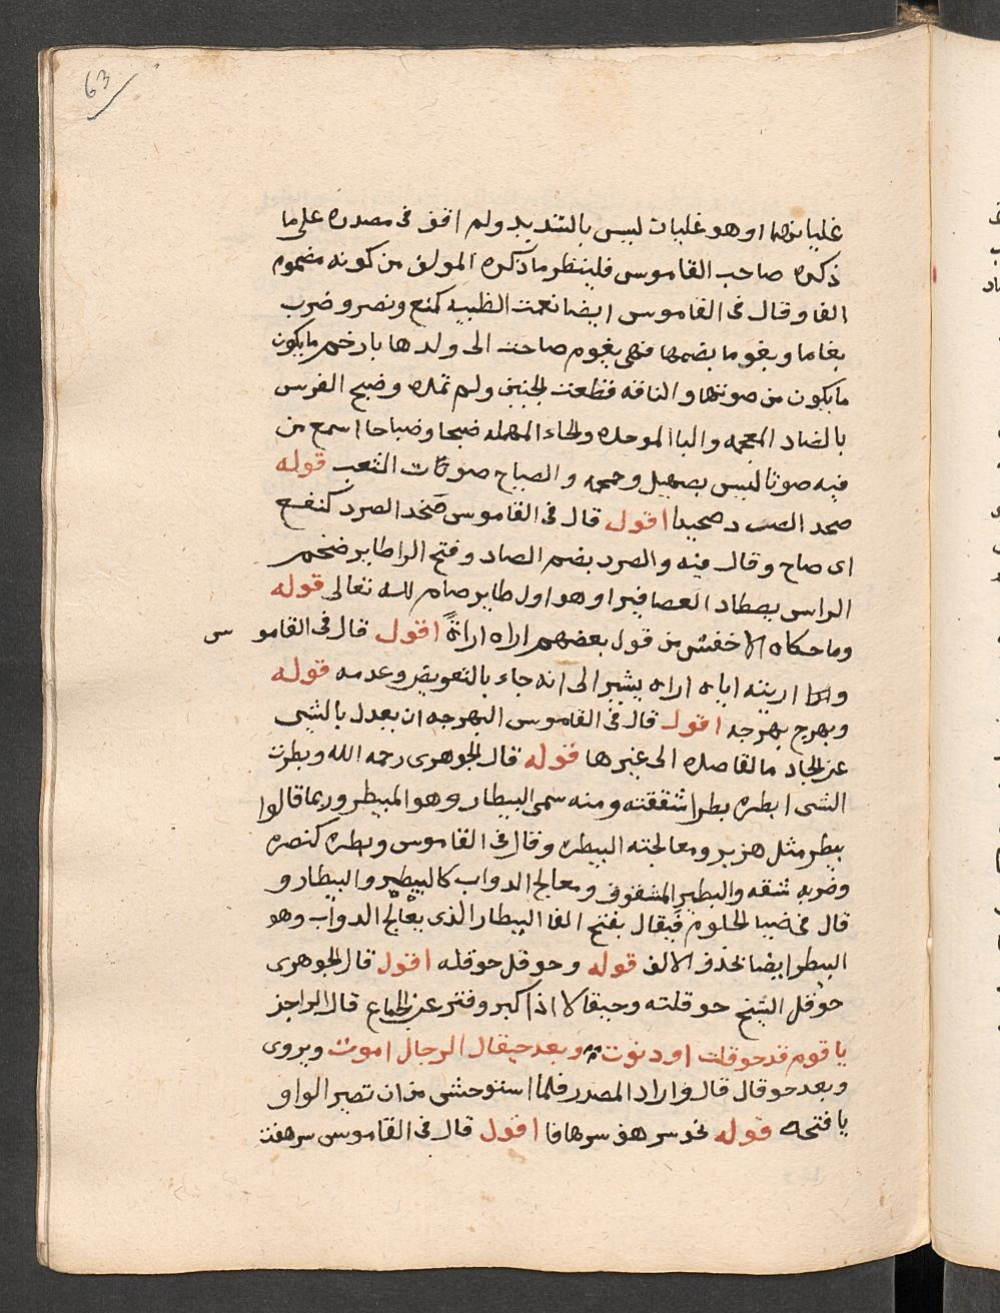 63
غليانهما او هو غليات ليس بالتشديد ولم اقف فى مصدره على ما
ذكره صاحب القاموس فلينظر ما ذكره المولف من كونه مضموم
الفا وقال فى القاموس ايضا نغمت الظبيه كمنع ونصر وضرب
بغاما وبغوما بضمها فهى بغوم صاحت الى ولدها بارخم ما يكون
ما يكون من صوتها والناقه قطعت الحنين ولم تمده وضبح الفرس
بالضاد المعجمه والبا الموحده والحاء المهمله ضبحا وضباحا اسمع من
فيه صوتا ليس بصهيل وحمحمه والضباح صوت الثعلب قوله
صخد الصرد صخيدا اقول قال فى القاموس صخد الصرد كنفع
اى صاح وقال فيه والصرد بضم الصاد وفتح الرا طاير ضخم
الراس يصطاد العصافير او هو اول طاير صام لله تعالى قوله
وما حكاه الاخفش من قول بعضهم اراه اراةً اقول قال فى القاموس
اريته اياه اراه يشير الى انه جاء بالتعويض وعدمه قوله
وبهرج بهرجه اقول قال فى القاموس البهرجه ان يعدل بالشى
عن الجاد ما القاصده الى غيرها قوله قال الجوهرى رحمه الله وبطرت
الشى ابطره بطرا شققته ومنه سمى البيطار وهو المبيطر وربما قالوا
بيطر مثل هزبر ومعالجته البيطره وقال فى القاموس وبطره كنصره
وضربه شقه والبطير المشقوق ومعالج الدواب كالبيطر والبيطار و
قال فى ضيا الحلوم فيعال بفتح الفا البيطار الذى يعالج الدواب وهو
البيطر ايضا بحذف الالف قوله وحوقل حوقله اقول قال الجوهرى
حوقل الشيخ حوقلته وحيقالا اذا كبر وفتر عن الجماع قال الراجز
يا قوم قد حوقلت او دنوت وبعد حيقال الرجال الموت ويروى
وبعد حوقال قال واراد المصدر فلما استوحش من ان تصير الواو
يا فتحه قوله نحو سرهف سرهافا اقول قال فى القاموس سرهفت